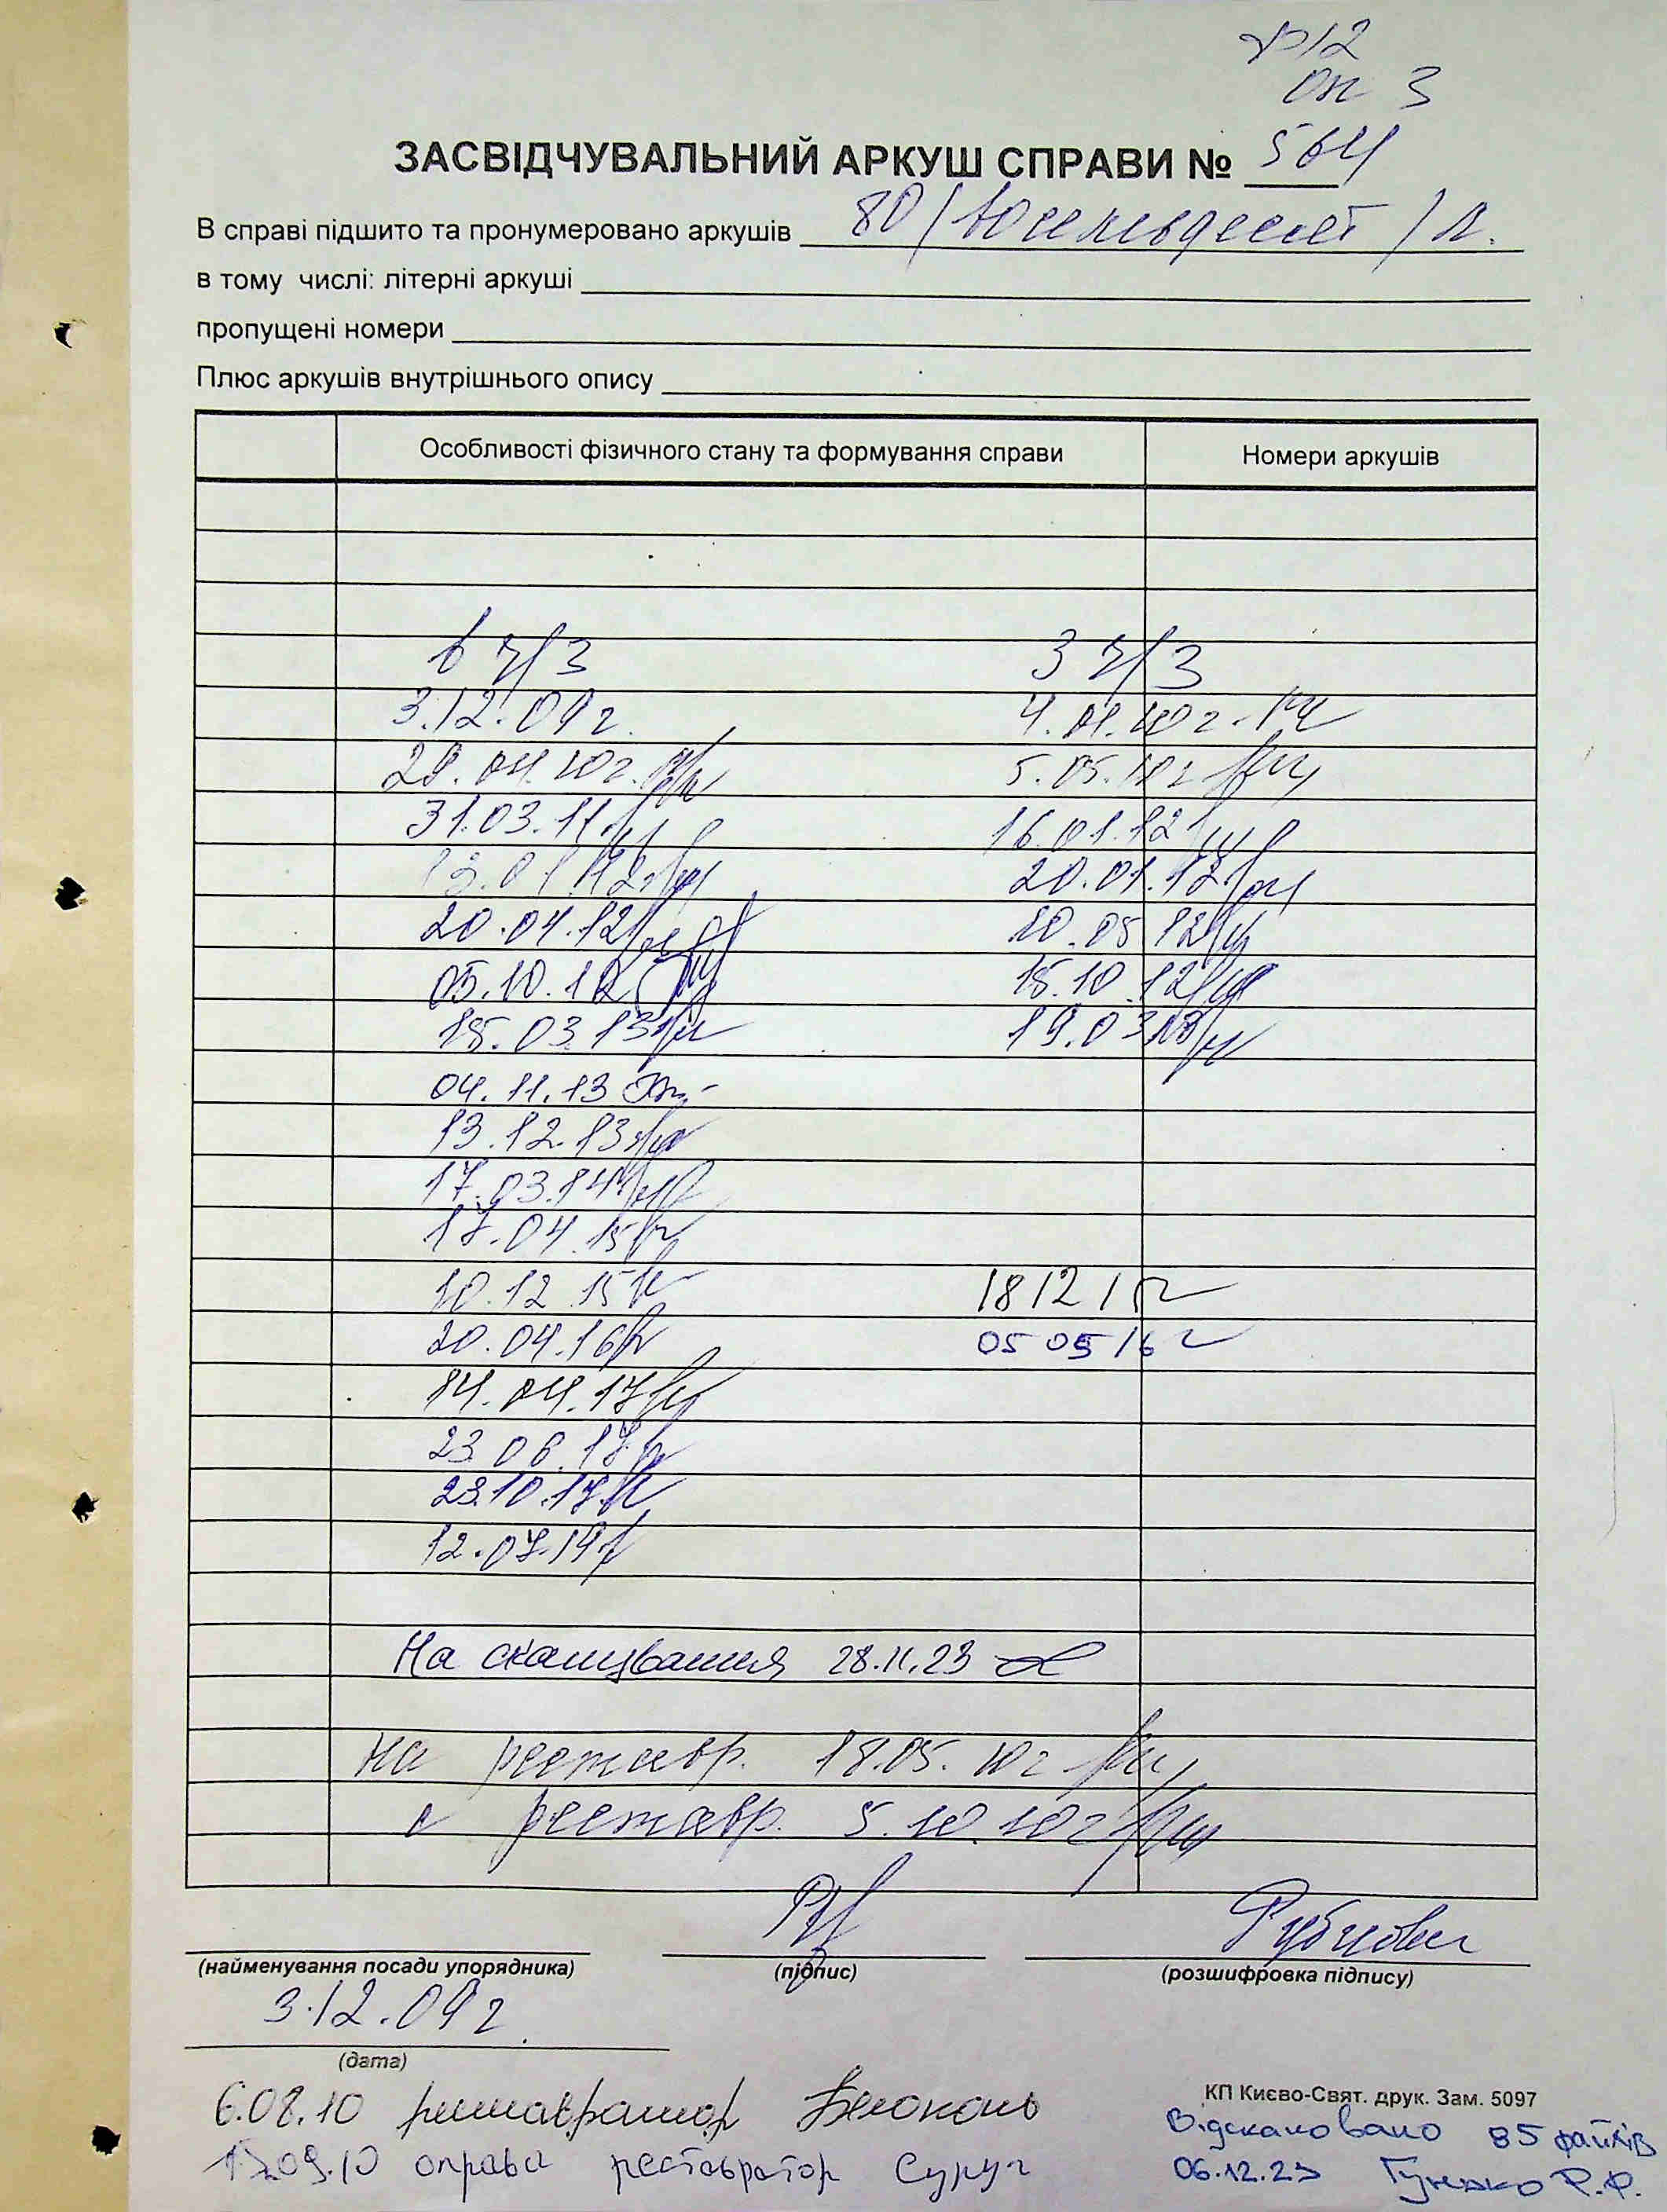 ф 12
оп 3
ЗАСВІДЧУВАЛЬНИЙ АРКУШ СПРАВИ № 564
В справі підшито та пронумеровано аркушів 80 /восемьдесят/ л.
в тому числі: літерні аркуші
пропущені номери
Плюс аркушів внутрішнього опису
Особливості фізичного стану та формування справи Номери аркушів
в ч/з З ч/з
3.12.09 г. 4.01.10 г.
29.04.10 г. 5.05.10 г
31.03.11 16.01.12
13.01.12 20.01.12
20.04.12 10.05.12
05.10.12 15.10.12
15.03.13 19.03.13
04.11.13
13.12.13
17.03.14
17.04.15
10.12.15 18 12 15
20.04.16 05 05 16
14.04.17
23.06.17
23.10.17
12.07.19
На сканування 28.11.23
на реставр. 18.05.10 г
с реставр. 5.10.10 г
Рубцова
(найменування посади упорядника) (підпис) (розшифровка підпису)
3.12.09 г.
(дата)
КП Києво-Свят. друк. Зам. 5097
6.08.10 реставратор Белоконь
09.10 оправа реставратор Суруг
Відскановано 85 файлів
06.12.23 Р.Ф.